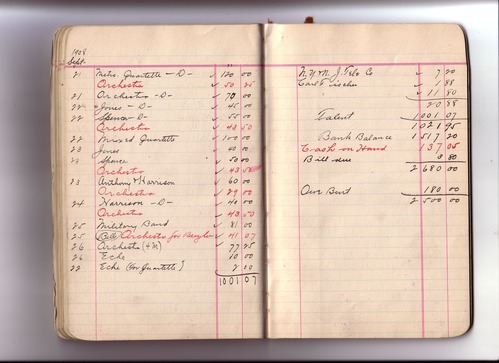 1908
Sept.
21 Metro. Quartette - D - ✓ 120 00
Orchestra ✓ 50 25
21 Orchestra - D - ✓ 70 00
22 Jones - D - ✓ 45 00
22 Spencer - D - ✓ 55 00
Orchestra ✓ 43 50
22 Mixed Quartette ✓ 100 00
23 Jones ✓ 50 00
23 Spencer ✓ 50 00
Orchestra ✓ 43 50
23 Anthony & Harrison ✓ 60 00
Orchestra ✓ 29 00
24 Harrison - D - ✓ 40 00
Orchestra ✓ 43 50
25 Military Band ✓ 81 00
25 Orchestra for ✓ 41 07
26 Orchestra ✓ 77 25
26 Eche 10 00
22 Eche (for Quartette) 2 00
1001 07
N.Y. & N.J. Tele. Co ✓ 7 20
Carl Fischer ✓ 1 88
✓ 11 80
20 88
Talent 1001 07
1021 95
Bank Balance 1517 20
Cash on Hand 137 05
Bill due 3 80
2680 00
Our Bund 180 00
2500 00